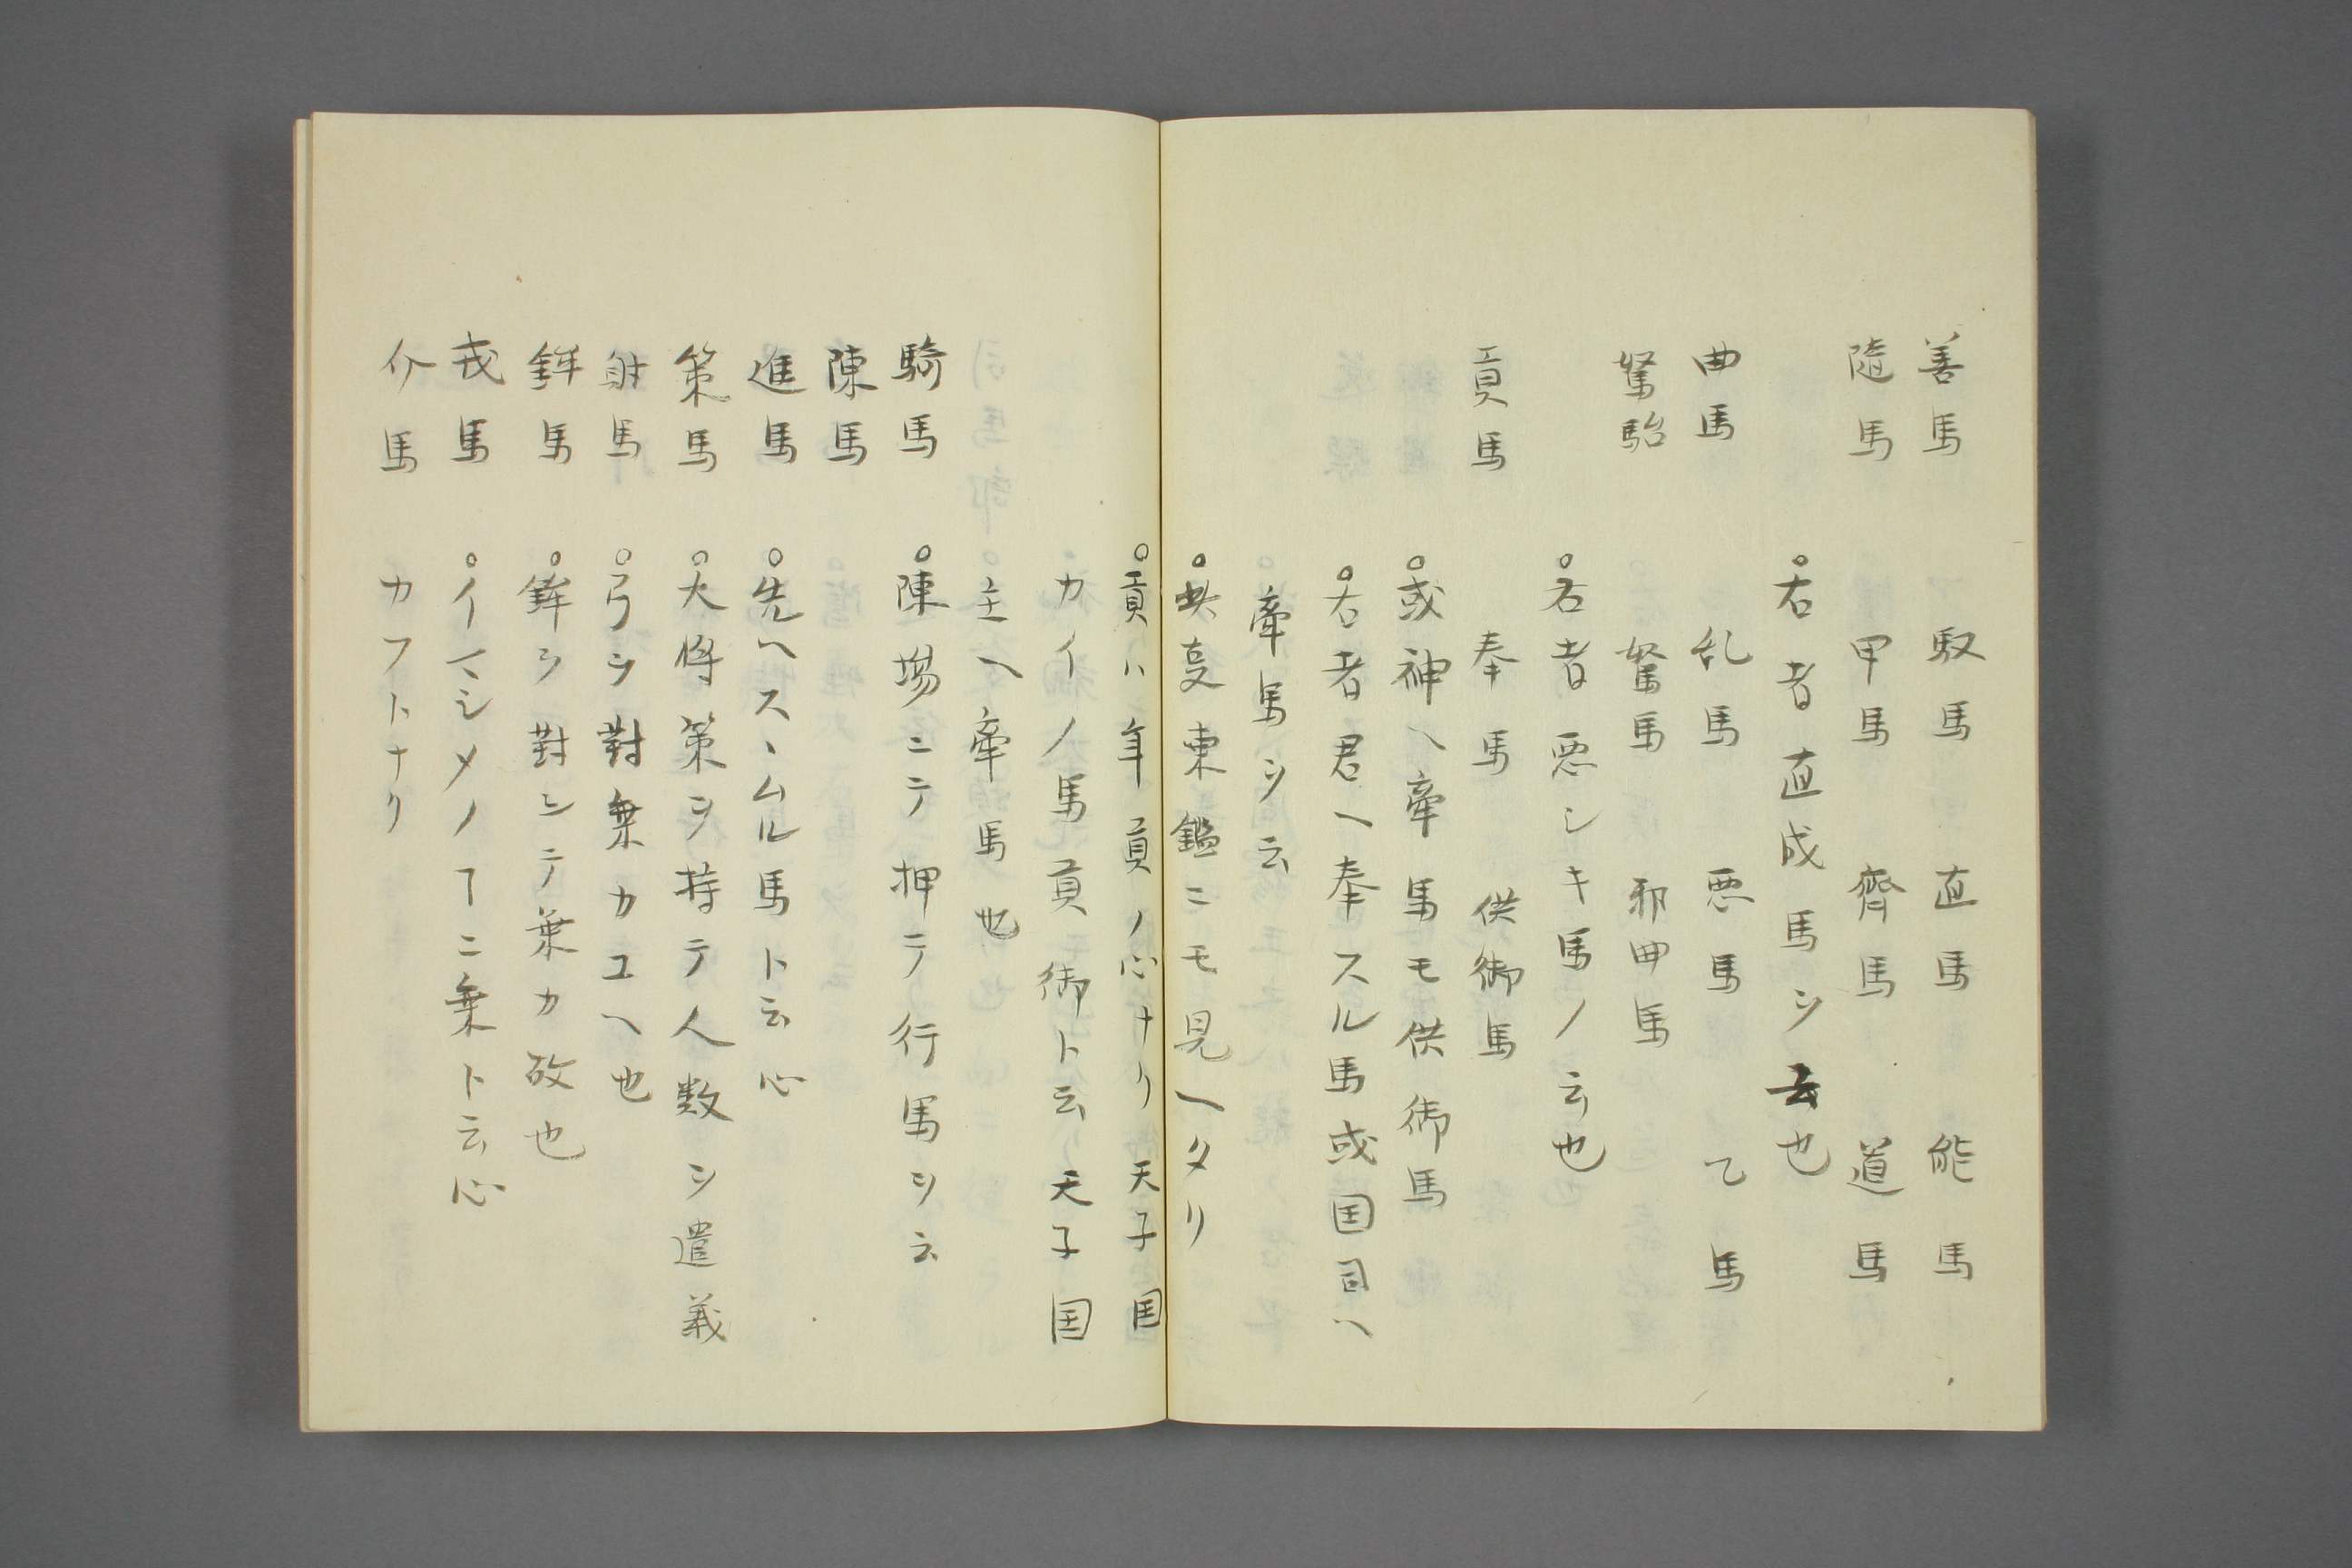 善馬 馭馬 直馬 能馬
随馬 甲馬 齊馬 道馬
○右者直成馬ヲ云也
曲馬 乱馬 悪馬 乙馬
駑駘 駑馬 邪曲馬
○右者悪シキ馬ノ云也
貢馬 奉馬 供御馬
○或神ヘ牽馬モ供御馬
○右者君ヘ奉スル馬或国司ヘ
牽馬ヲ云
○此夏東鑑ニモ見ヘタリ
○貢ハ年貢ノ心ナリ 天子国
カイノ馬貢モ御ト云天子国
主ヘ牽馬也
騎馬 ○陳場ニテ押テ行馬ヲ云
陳馬
進馬 ○先ヘスヽムル馬ト云心
策馬 ○大将策ヲ持テ人数ヲ遣義
射馬 ○弓ヲ對乗カユヘ也
鉾馬 ○鉾ヲ對シテ乗カ故也
戎馬 ○イマシメノヿニ乗ト云心
介馬 カフトナリ